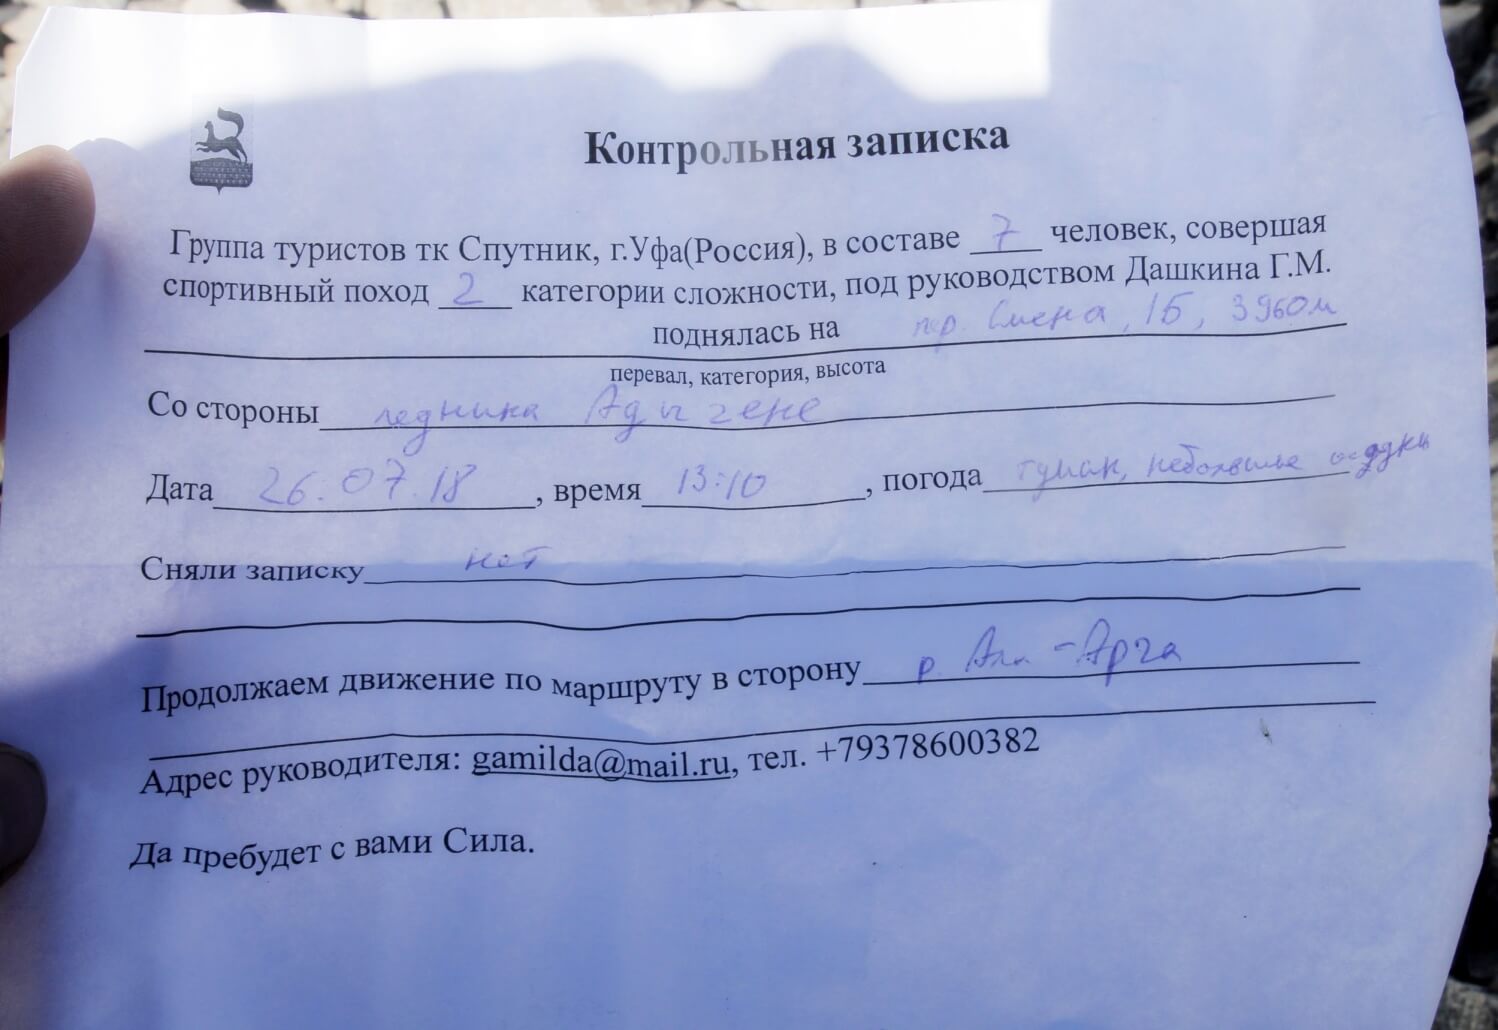 Контрольная записка
Группа туристов тк Спутник, г.Уфа(Россия), в составе 7 человек, совершая
спортивный поход 2 категории сложности, под руководством Дашкина Г.М.
поднялась на пер. Смена, 1Б, 3960м
перевал, категория, высота
Со стороны ледника Адыгене
Дата 26.07.18, время 13:10, погода туман, небольшие осадки
Сняли записку нет
Продолжаем движение по маршруту в сторону р. Ала-Арча
Адрес руководителя: gamilda@mail.ru, тел. +79378600382
Да пребудет с вами Сила.